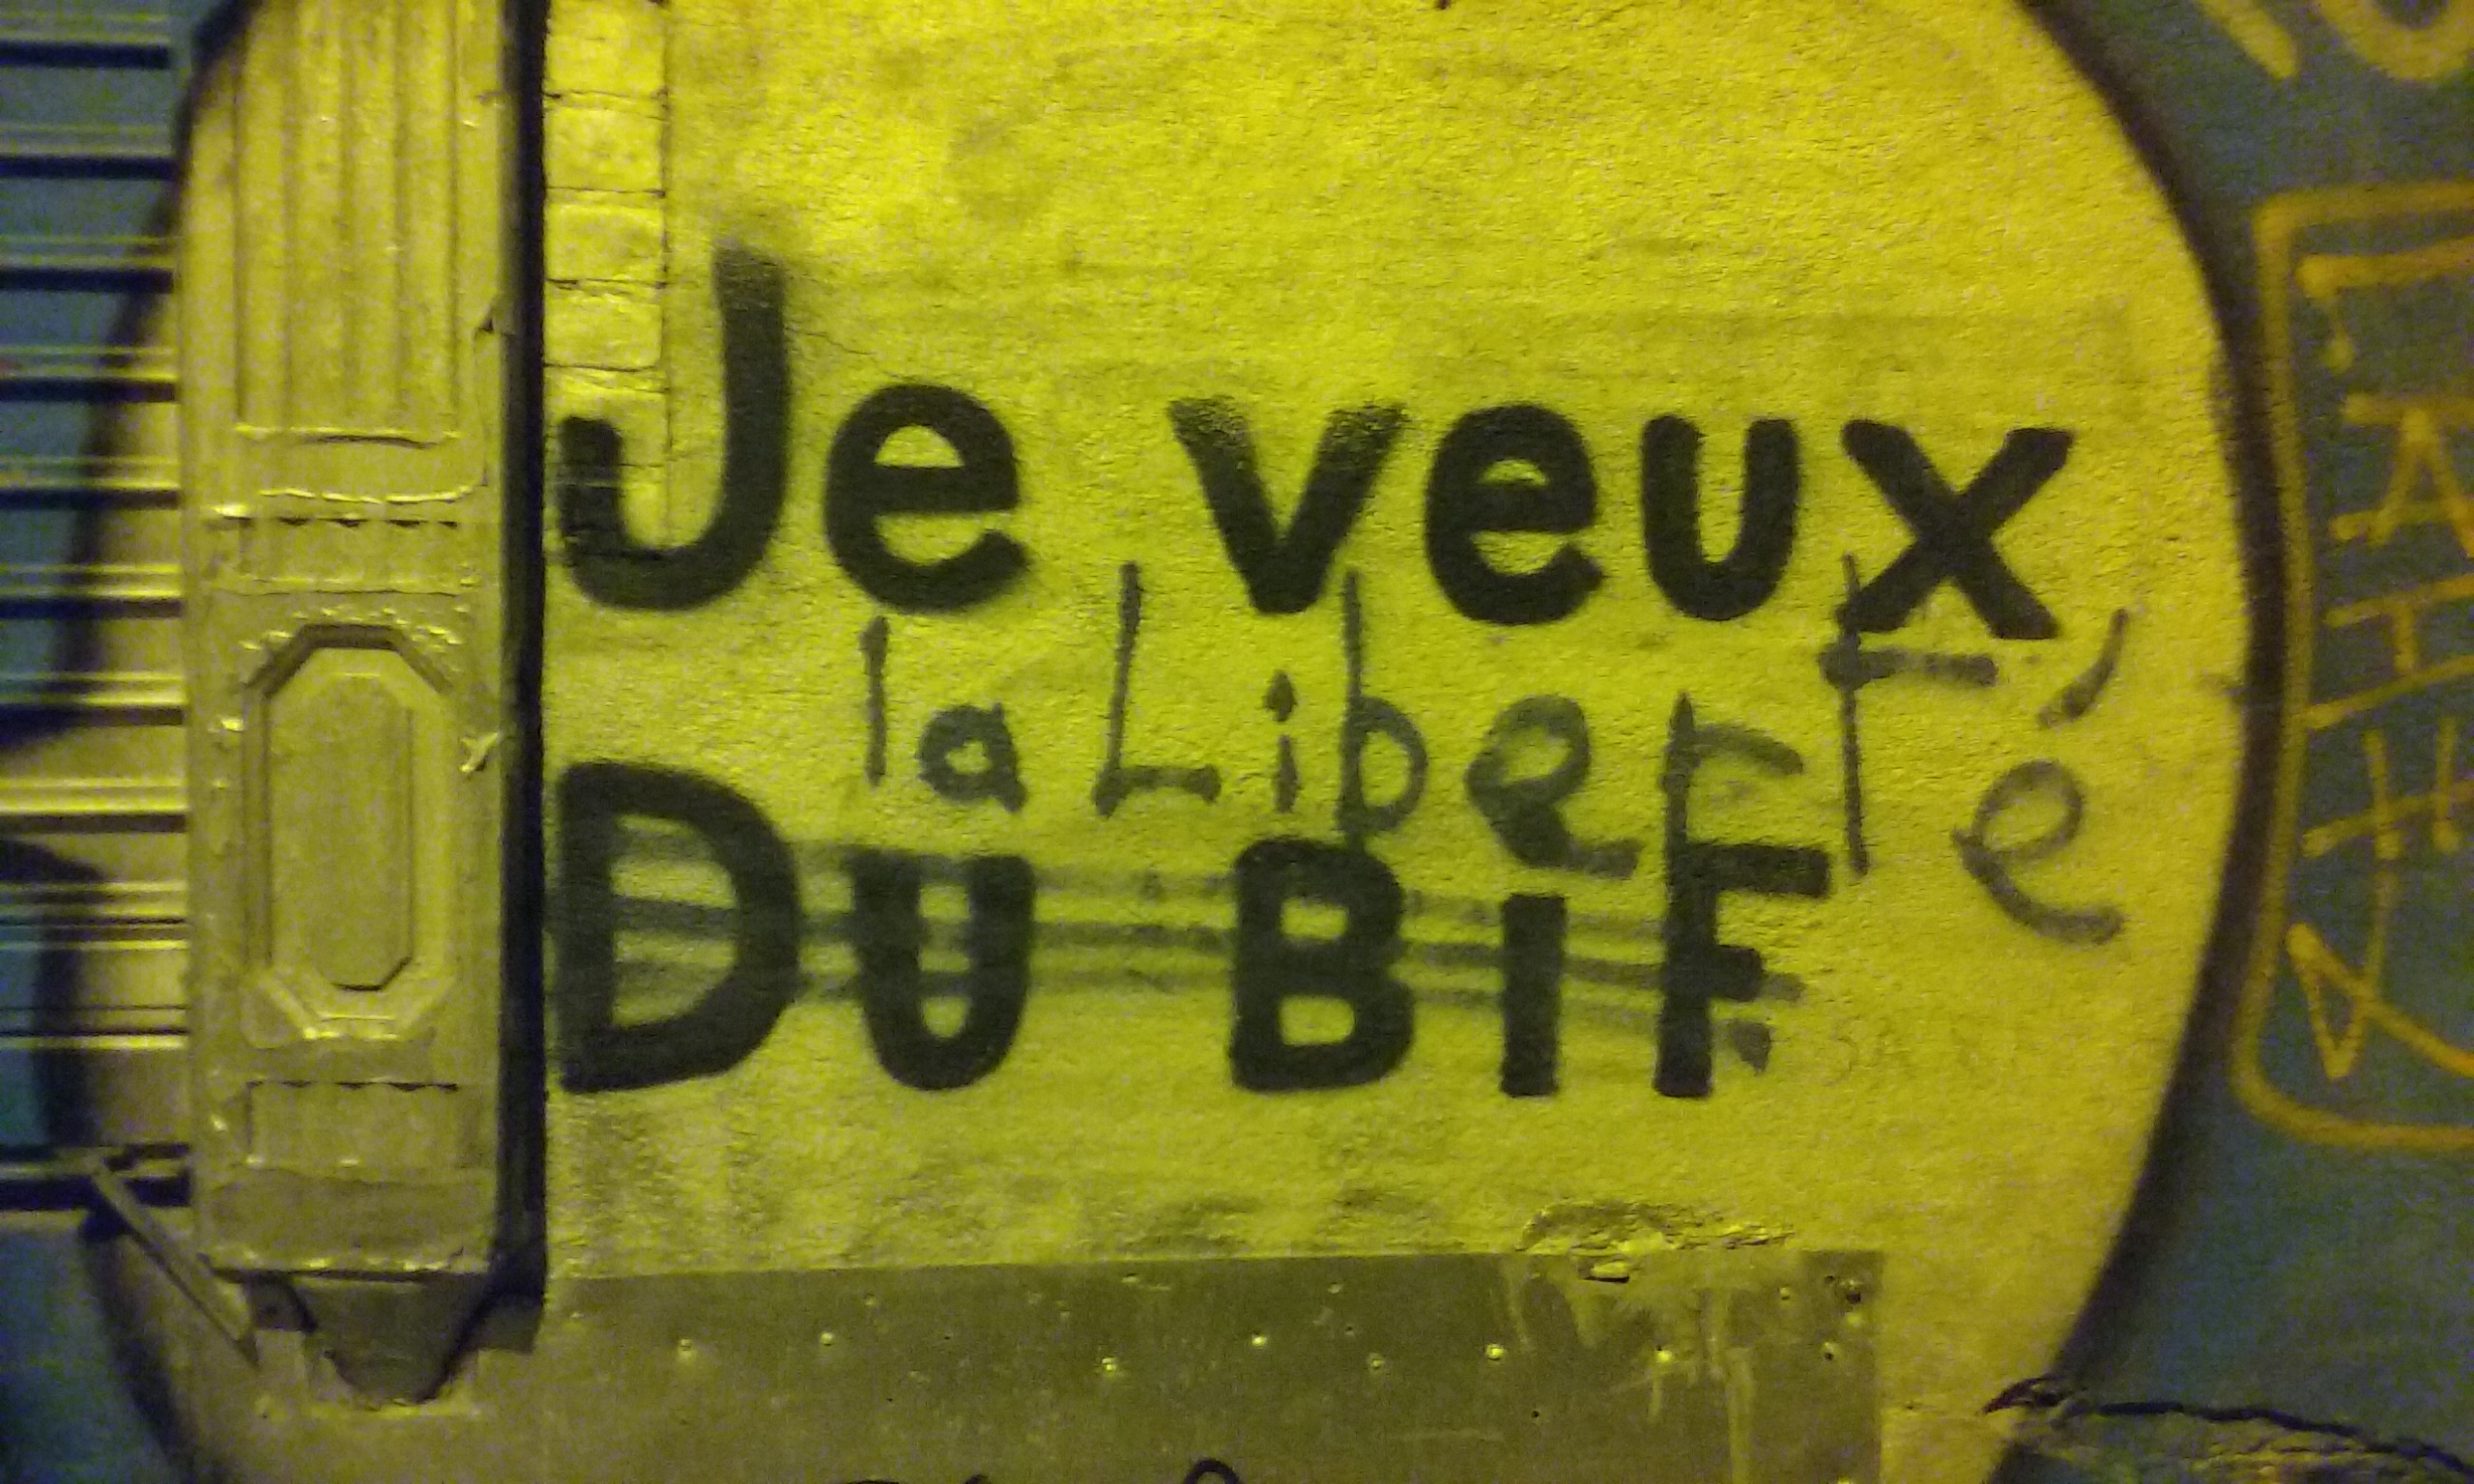 Je veux
la Liberté
DU BIF